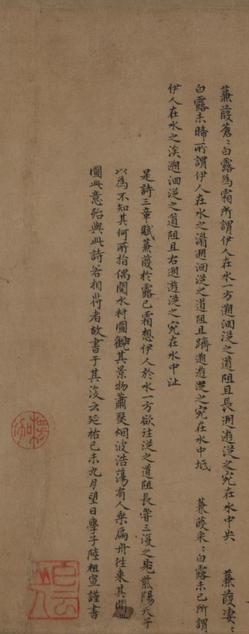 蒹葭蒼〻白露為霜所謂伊人在水一方遡洄從之道阻且長遡遊從之宛在水中央　蒹葭凄〻
白露未晞所謂伊人在水之湄遡洄從之道阻且躋遡遊從之宛在水中坻　蒹葭采〻白露未已所謂
伊人在水之涘遡洄從之道阻且右遡遊從之宛在水中沚
是詩三章賦蒹葭於露已霜想伊人於水一方欲往從之道阻長等三復之
以為不知其何所指偶閱水村圖觀其景物蕭 烟波浩蕩有人乘扁舟往來其間
圖此意殆與此詩若相符者故書于其後云延祐己未九月望日學子陸祖宣謹書